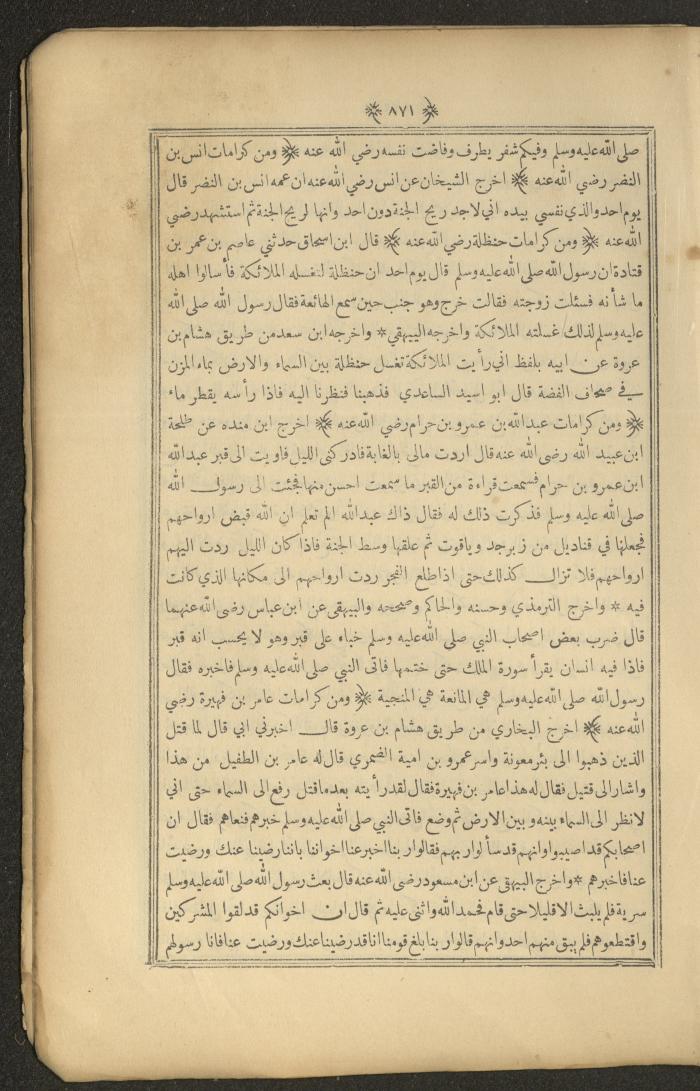 ٨٧١
صلى الله عليه وسلم وفيكم شفر يطرف وفاضت نفسه رضي الله عنه ﴿ ومن كرامات انس بن
النضر رضي الله عنه ﴾ اخرج الشيخان عن انس رضي الله عنه ان عمه انس بن النضر قال
يوم احد والذي نفسي بيده اني لاجد ريح الجنة دون احد وانها لريح الجنة ثم استشهد رضي
الله عنه ﴿ ومن كرامات حنظلة رضي الله عنه ﴾ قال ابن اسحاق حدثني عاصم بن عمر بن
قتادة ان رسول الله صلى الله عليه وسلم قال يوم احد ان حنظلة لتغسله الملائكة فأسالوا اهله
ما شأنه فسئلت زوجته فقالت خرج وهو جنب حين سمع الهائعة فقال رسول الله صلى الله
عليه وسلم لذلك غسلته الملائكة واخرجه البيهقي * واخرجه ابن سعد من طريق هشام بن
عروة عن ابيه بلفظ اني رأيت الملائكة تغسل حنظلة بين السماء والارض بماء المزن
في صحاف الفضة قال ابو اسيد الساعدي فذهبنا فنظرنا اليه فاذا رأسه يقطر ماء
﴿ ومن كرامات عبدالله بن عمرو بن حرام رضي الله عنه ﴾ اخرج ابن منده عن طلحة
ابن عبيد الله رضى الله عنه قال اردت مالى بالغابة فادركنى الليل فاويت الى قبر عبدالله
ابن عمرو بن حرام فسمعت قراءة من القبر ما سمعت احسن منها فجئت الى رسول الله
صلى الله عليه وسلم فذكرت ذلك له فقال ذاك عبدالله الم تعلم ان الله قبض ارواحهم
فجعلها في قناديل من زبرجد وياقوت ثم علقها وسط الجنة فاذا كان الليل ردت اليهم
ارواحهم فلا تزال كذلك حتى اذا طلع الفجر ردت ارواحهم الى مكانها الذي كانت
فيه * واخرج الترمذي وحسنه والحاكم وصححه والبيهقى عن ابن عباس رضى الله عنهما
قال ضرب بعض اصحاب النبي صلى الله عليه وسلم خباء على قبر وهو لا يحسب انه قبر
فاذا فيه انسان يقرأ سورة الملك حتى ختمها فاتى النبي صلى الله عليه وسلم فاخبره فقال
رسول الله صلى الله عليه وسلم هي المانعة هي المنجية ﴿ ومن كرامات عامر بن فهيرة رضي
الله عنه ﴾ اخرج البخاري من طريق هشام بن عروة قال اخبرني ابي قال لما قتل
الذين ذهبوا الى بئر معونة واسر عمرو بن امية الضمري قال له عامر بن الطفيل من هذا
واشار الى قتيل فقال له هذا عامر بن فهيرة فقال لقد رأيته بعد ما قتل رفع الى السماء حتى اني
لانظر الى السماء بينه وبين الارض ثم وضع فاتى النبي صلى الله عليه وسلم خبرهم فنعاهم فقال ان
اصحابكم قد اصيبوا وانهم قد سألوا ربهم فقالوا ربنا اخبر عنا اخواننا باننا رضينا عنك ورضيت
عنا فاخبرهم * واخرج البيهقى عن ابن مسعود رضى الله عنه قال بعث رسول الله صلى الله عليه وسلم
سرية فلم يلبث الا قليلا حتى قام فحمد الله واثنى عليه ثم قال ان اخوانكم قد لقوا المشركين
واقتطعوهم فلم يبق منهم احد وانهم قالوا ربنا بلغ قومنا انا قد رضينا عنك ورضيت عنا فانا رسولهم